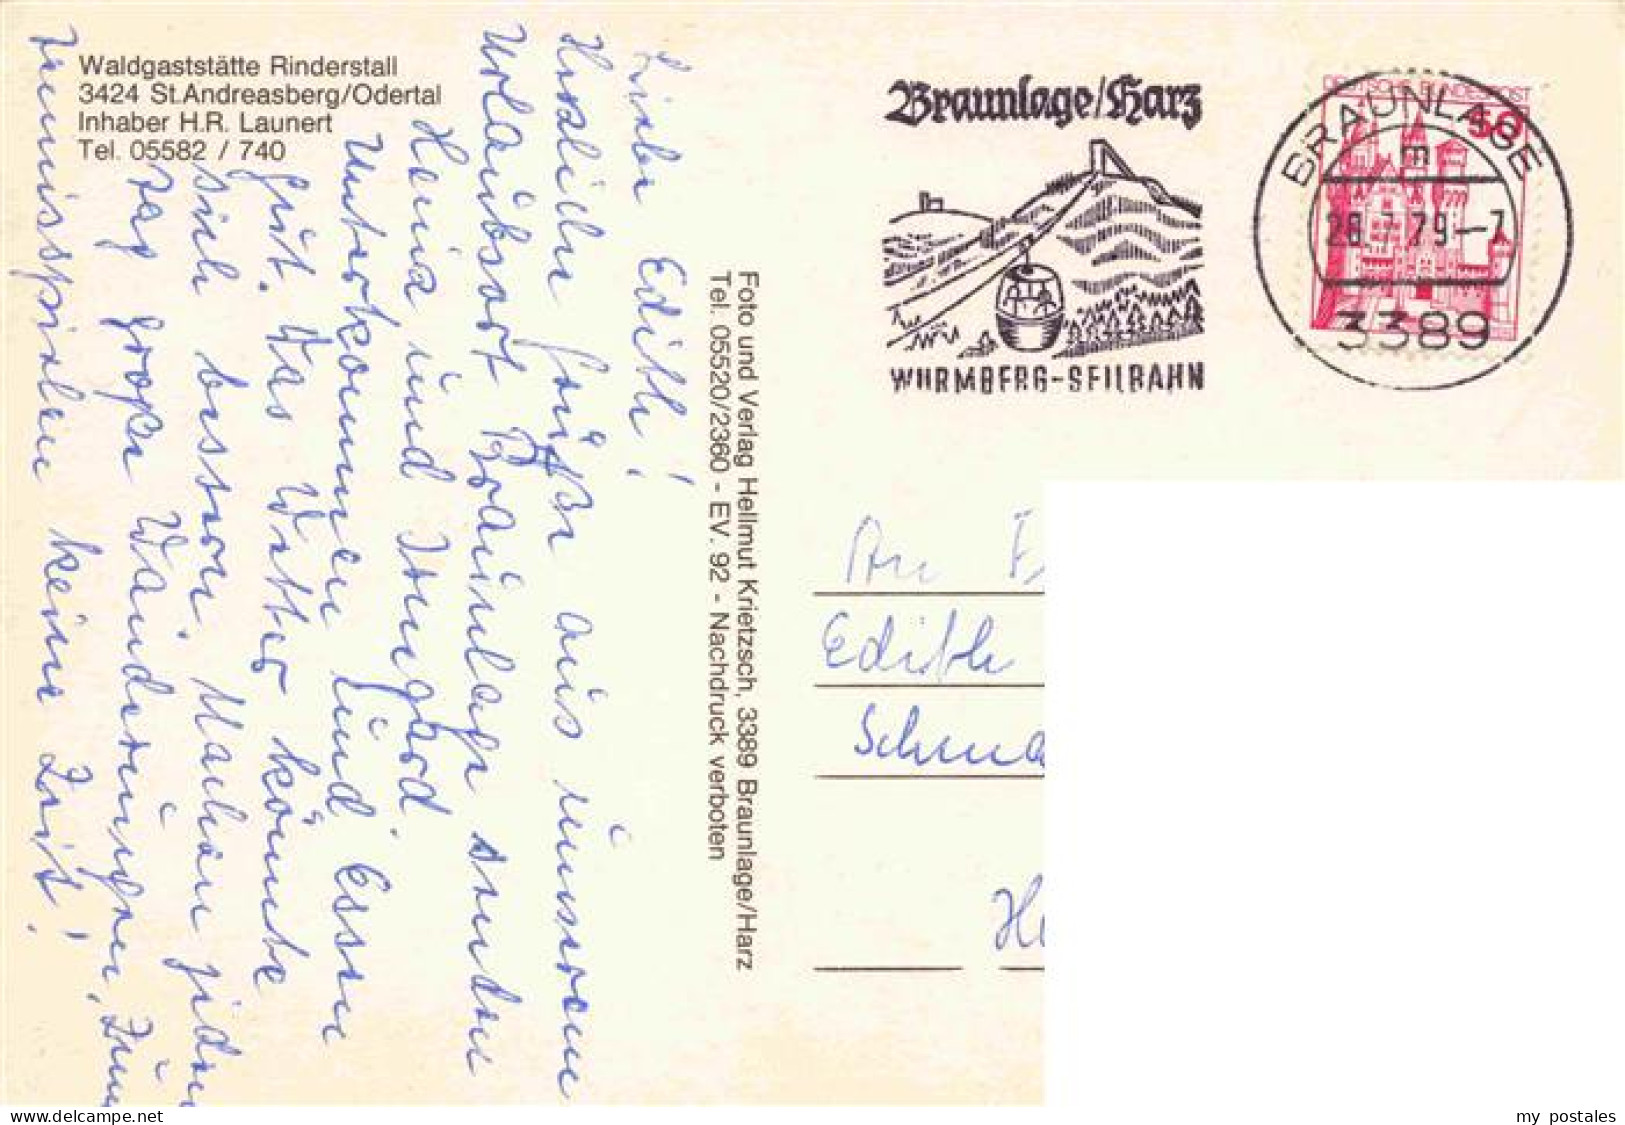 Waldgaststätte Rinderstall
3424 St.Andreasberg/Odertal
Inhaber H.R. Launert
Tel. 05582 / 740
Liebe Edith!
Herzliche Grüße aus unserem
Urlaubsort Braunlage senden
Heinz und Irmgard.
Unterkommen und Essen
gut. Das Wetter könnte
sich bessern. Machen jeden
Tag große Wanderungen, zum
Tennisspielen keine Zeit!
Foto und Verlag Hellmut Krietzsch, 3389 Braunlage/Harz
Tel. 05520/2360 - EV. 92 - Nachdruck verboten
Braunlage/Harz
WURMBERG-SEILBAHN
DEUTSCHE BUNDESPOST
50
BRAUNLAGE
m
28.7.79--7
3389
An
Edith
my postales